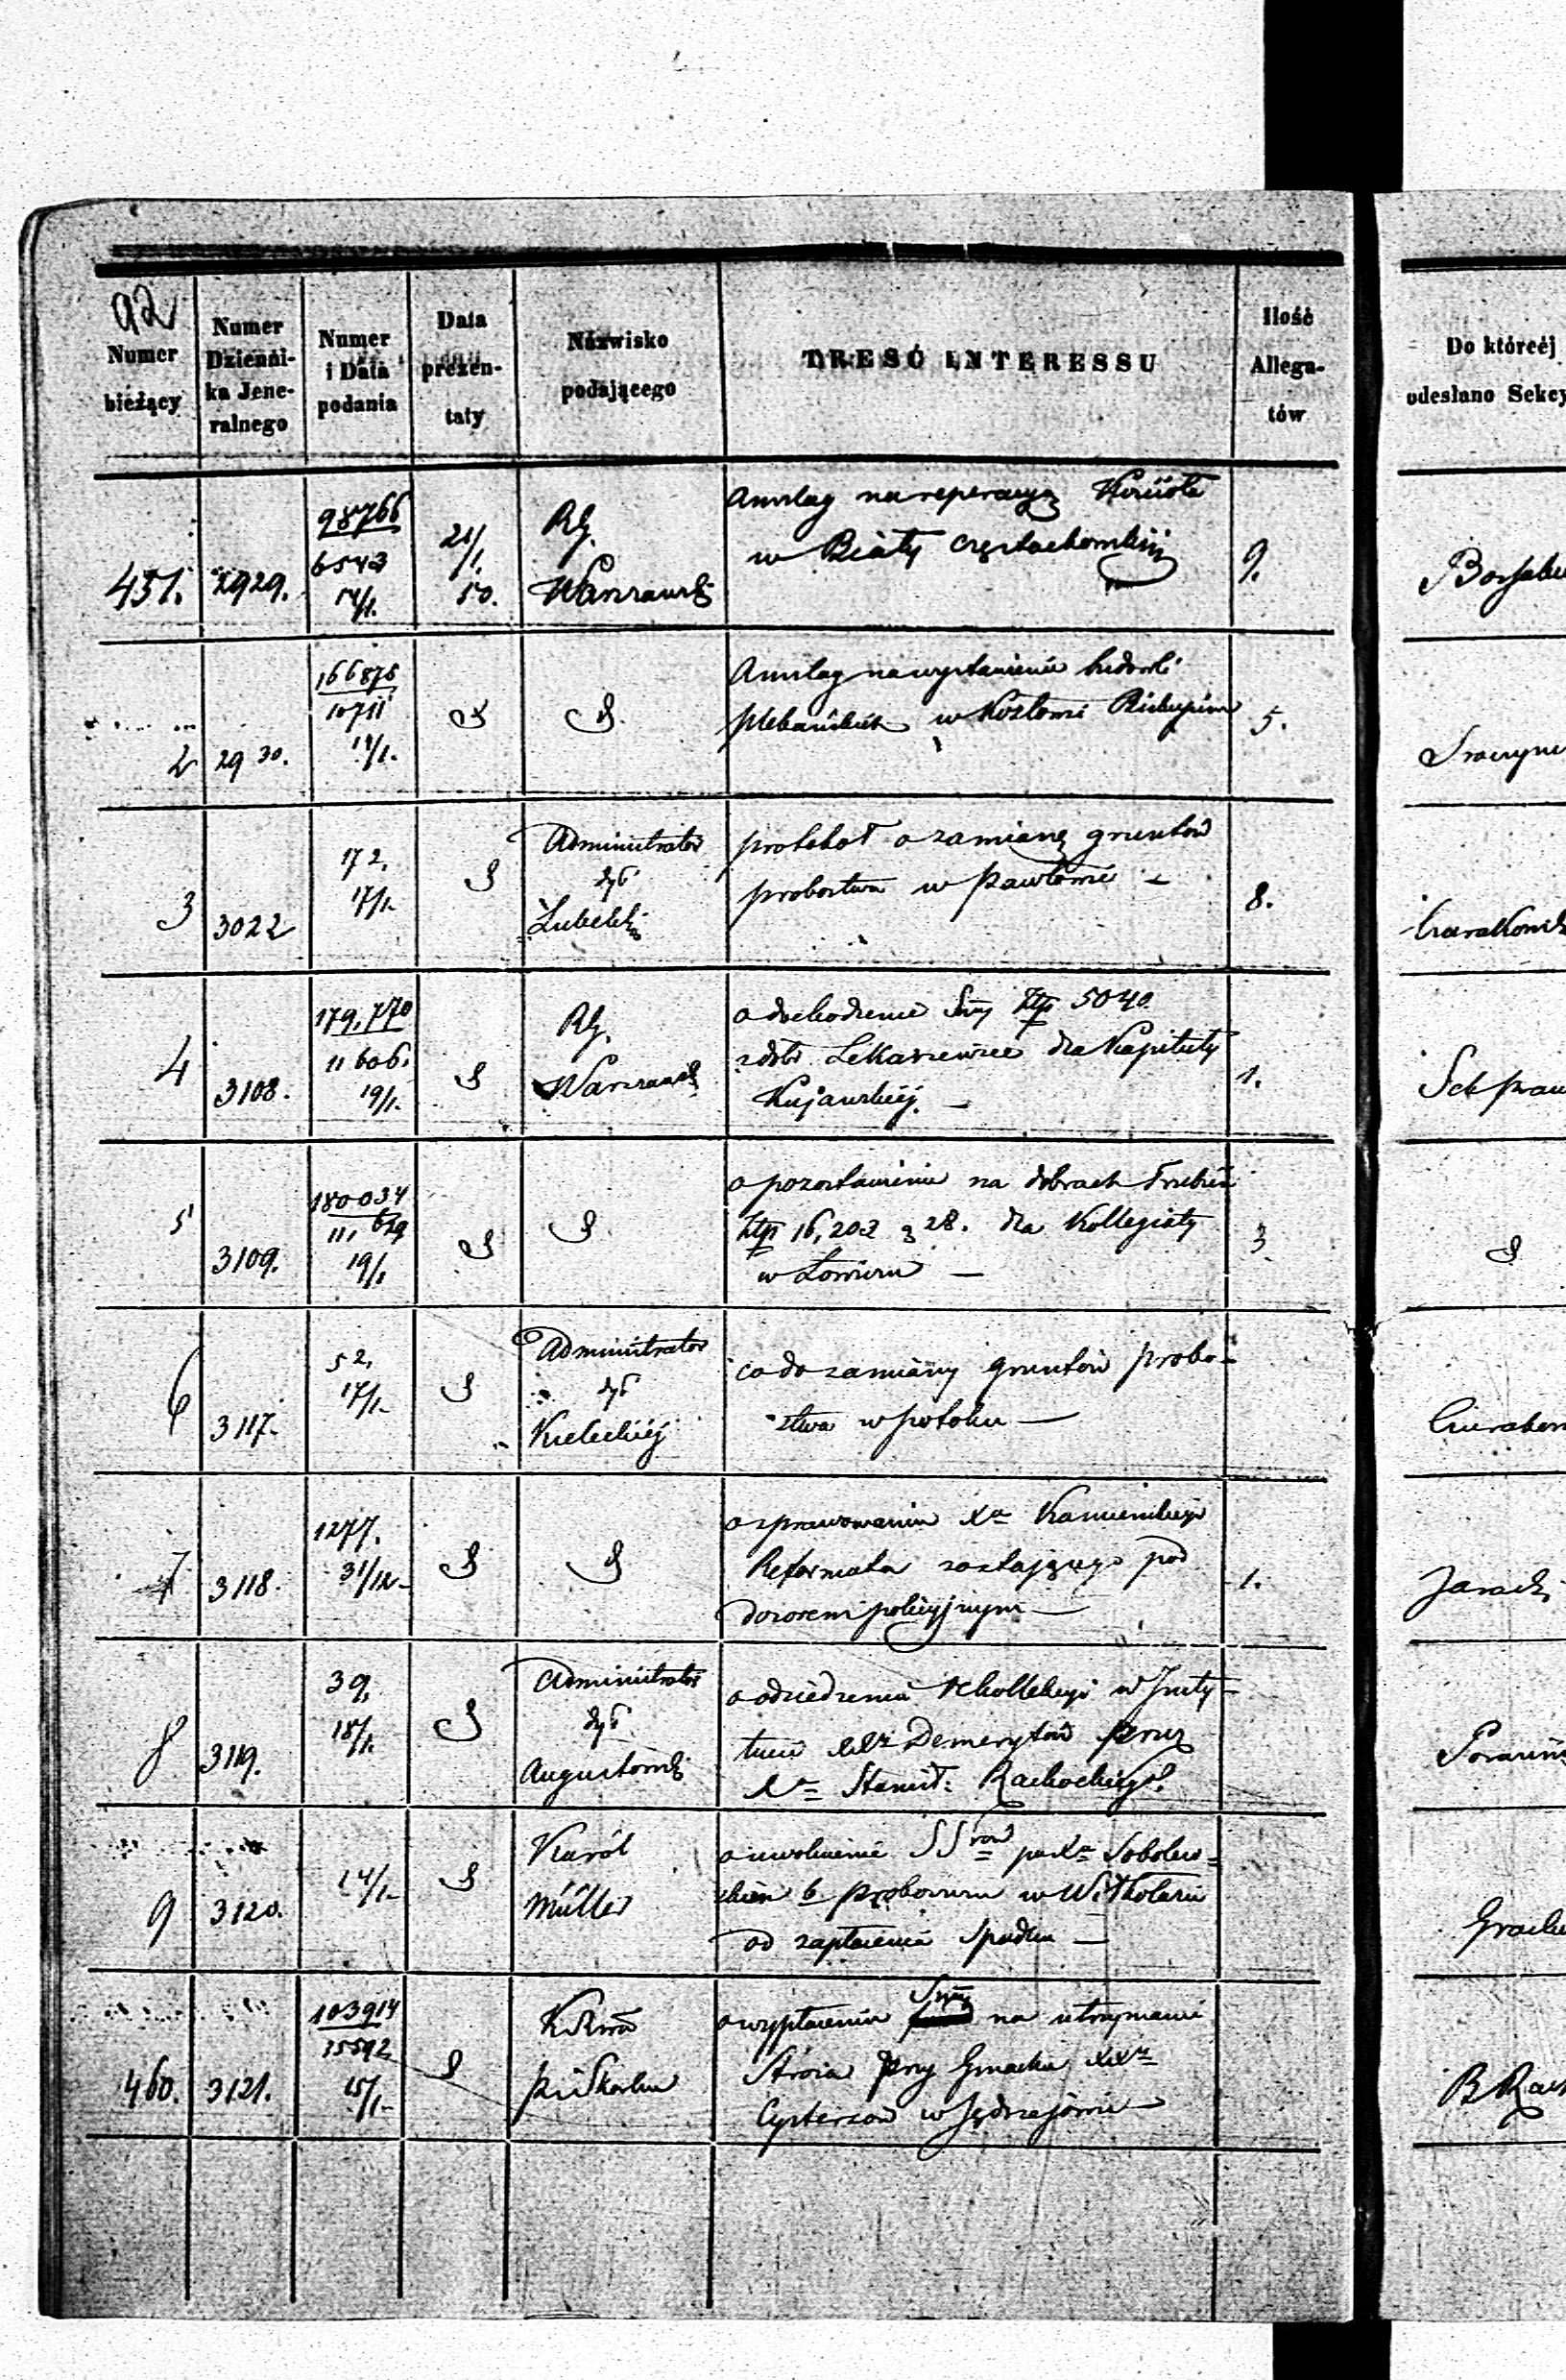 92
Numer bieżący
Numer Dzienni-ka Jene-ralnego
Numer i Data podania
Data prezen-taty
Nazwisko podającego
TREŚĆ INTERESSU
Ilość Allega-tów
Do któréj odesłano Sekcy
451. 2929. 98766 6543 14/1. 21/1. 50. RG. Warszawski
Anszlag na reperacyą Kościoła
w Biały Częstochowskiéj
9.
2 2930. 166876 10711 19/1. S S.
Anszlag na wystawienie budowli
plebańskich w Kozłowie Biskupim
5.
3 3022 172. 17/1. S Administrator dyc Lubelskiéj
protokół o zamianę gruntów
probostwa w Pawłowie —
8.
4 3108. 179,770 11606. 19/1. S RG. Warszawski
o dochodzenie Sumy Złp 5040.
z dóbr dla Kapituły
Kujawskiéj. —
1.
5 3109. 180034 11,629 19/1 S S.
o pozostawienie na dobrach
Złp 16,203 g 28. dla Kollegiaty
w Łowiczu —
3.
S.
6 3117. 52. 17/1. S Administrator dyc Kieleckiéj
co do zamiany gruntów probo-
stwa w Potoku —
7 3118. 1277. 31/12. S S
o sprawowaniu Xa Kamieńskiego
Reformata zostającego pod
dozorem policyjnym —
1.
8 3119. 39. 18/1. S Administrator dyc Augustowski
o odsiedzeniu w Insty-
tucie XXy Demerytów przez
Xa Stanisł:
9 3120. 14/1. S Karól Müller
o uwolnienie SSrów po Xu Sobolew-
skim b proboszczu w
od zapłacenia Spadku —
460. 3121. 103914 15592 15/1. S KRPiSkarbu
o wypłacenie Sumy na utrzymanie
Stróża przy Gmachu XXy
Cystersów w Jędrzejowie —